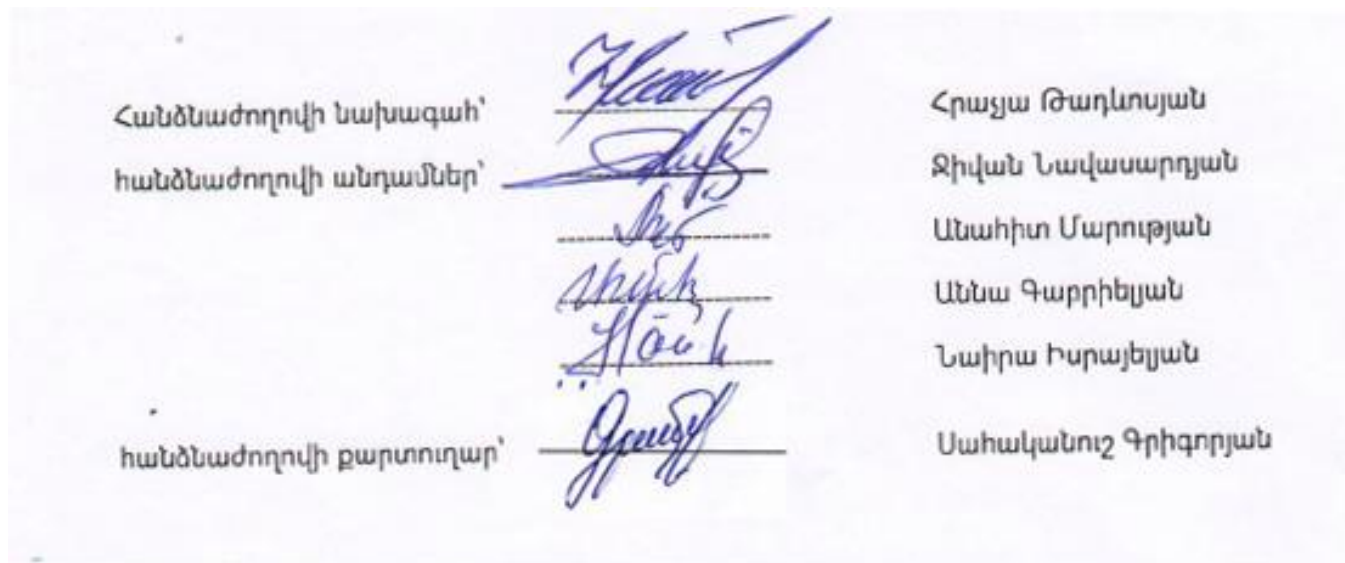 Հանձնաժողովի նախագահ՝ Հրաչյա Թադևոսյան
հանձնաժողովի անդամներ՝ Ջիվան Նավասարդյան
Անահիտ Մարության
Աննա Գաբրիելյան
Նաիրա Իսրայելյան
հանձնաժողովի քարտուղար՝ Սահականուշ Գրիգորյան